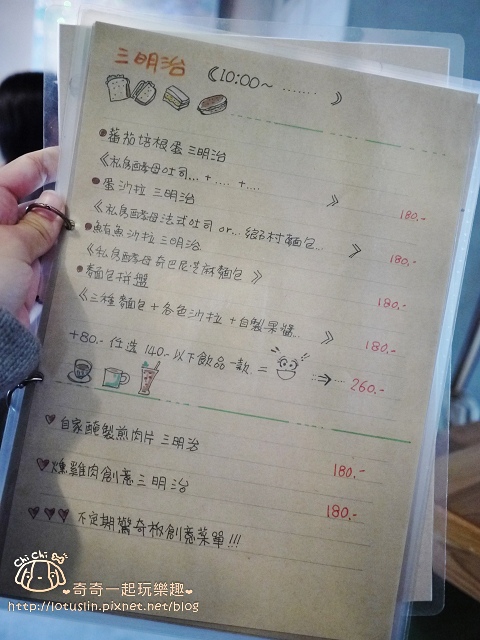 三明治 《10:00~ ........ 》
●蕃茄培根蛋 三明治
《私房酵母吐司... + .... + .... 》 180.-
●蛋沙拉 三明治
《私房酵母法式吐司 or... 鄉村麵包... 》 180.-
●鮪魚沙拉三明治
《私房酵母奇巴尼芝麻麵包 》 180.-
●麵包拼盤
《三種麵包+各色沙拉+自製果醬... 》 180.-
+80.- 任選 140.- 以下飲品一款 = ...→... 260.-
♥自家醃製煎肉片 三明治 180.-
♥燻雞肉創意三明治 180.-
♥♥♥ 不定期驚奇椒創意菜單!!!
Chi Chi
♥奇奇一起玩樂趣♥
http://lotuslin.pixnet.net/blog